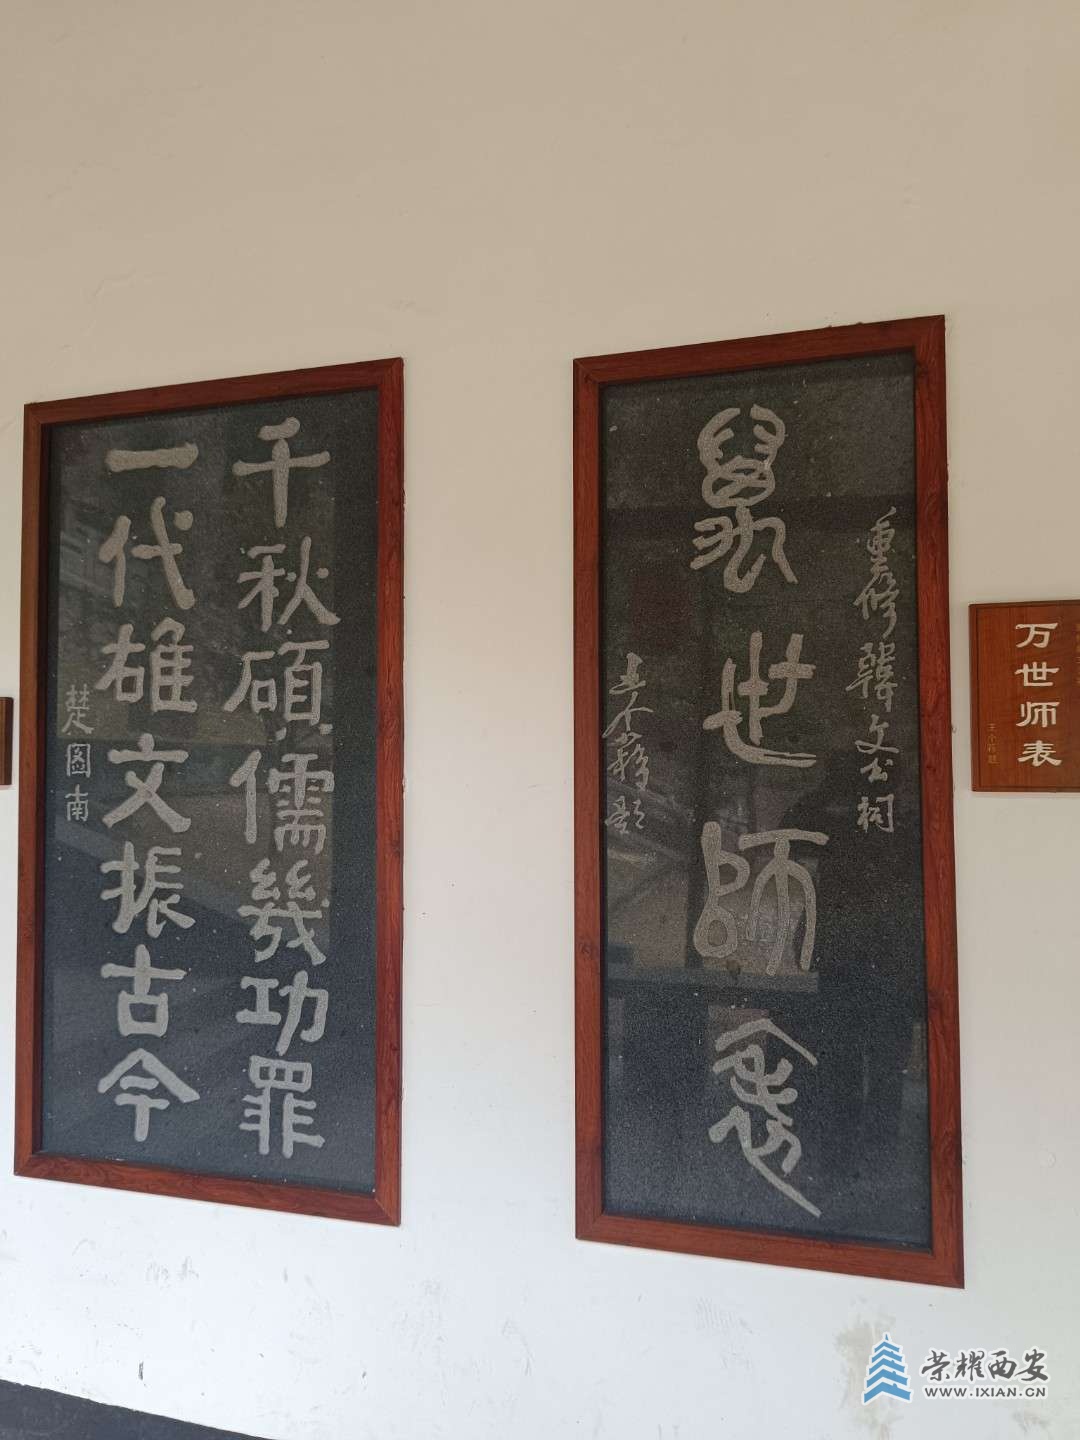 重修韓文公祠
萬世師表
王个簃題
万世师表
王个簃题
千秋碩儒幾功罪
一代雄文振古今
楚圖南
荣耀西安
WWW.IXIAN.CN